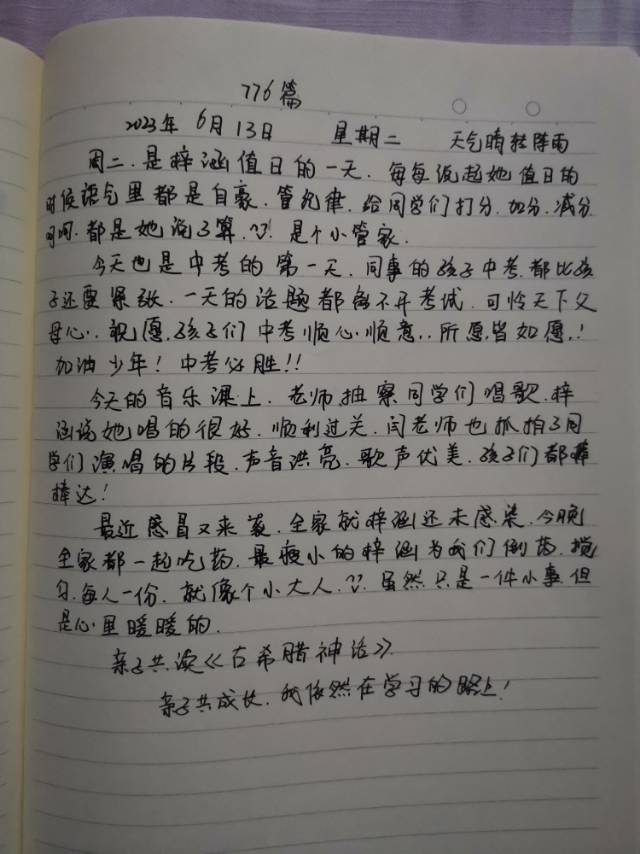 776篇
2023年 6月13日 星期二 天气晴转阵雨
周二.是梓涵值日的一天.每每说起她值日的
时候语气里都是自豪.管纪律.给同学们打分.加分.减分
呵呵.都是她说了算.是个小管家.
今天也是中考的第一天.同事的孩子中考.都比孩
子还要紧张.一天的话题都离不开考试.可怜天下父
母心.祝愿.孩子们中考顺心顺意..所愿皆如愿.!
加油少年!中考必胜!!
今天的音乐课上.老师抽察同学们唱歌.梓
涵说她唱的很好.顺利过关.闫老师也抓拍了同
学们演唱的片段.声音洪亮.歌声优美.孩子们都棒
棒达!
最近感冒又来袭.全家就梓涵还未感染.今晚
全家都一起吃药.最瘦小的梓涵为我们倒药.搅
匀.每人一份.就像个小大人.虽然只是一件小事.但
是心里暖暖的.
亲子共读《古希腊神话》.
亲子共成长.我依然在学习的路上!